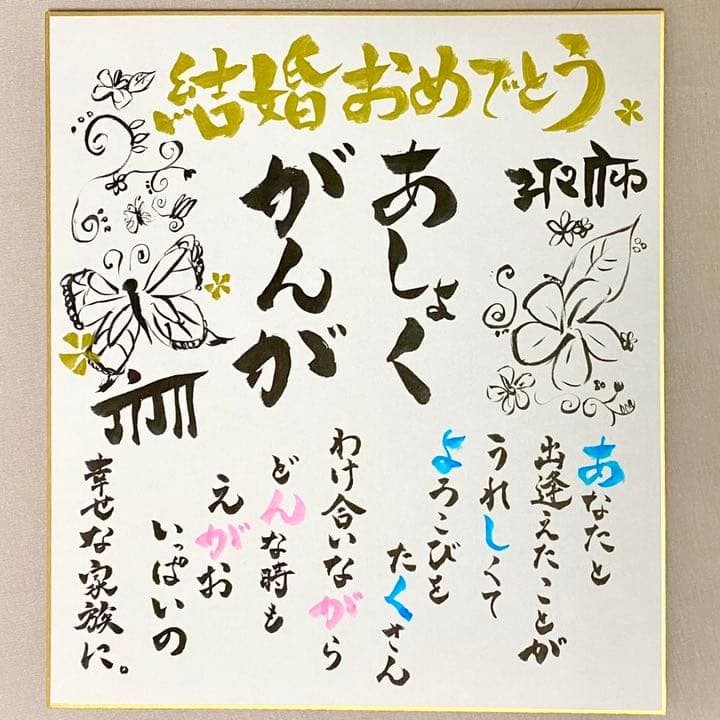 結婚おめでとう
あしょく
がんが
あなたと
出逢えたことが
うれしくて
よろこびを
たくさん
わけ合いながら
どんな時も
えがお
いっぱいの
幸せな家族に。